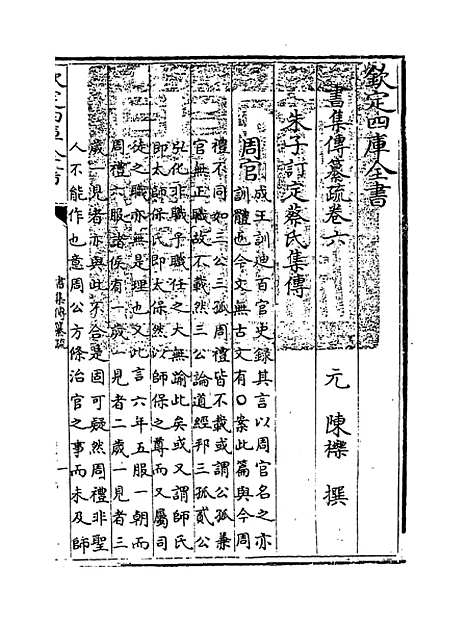 欽定四庫全書
書集傳纂疏卷六
元 陳櫟 撰
朱子訂定蔡氏集傳
周官
成王訓迪百官史錄其言以周官名之亦
訓體也今文無古文有○案此篇與今周
禮不同如三公三孤周禮皆不載或謂公孤兼
官無正職故不載然三公論道經邦三孤貳公
弘化非職乎職任之大無踰此矣或又謂師氏
即太師保氏即太保然以師保之尊而又屬司
徒之職亦無是理也又此言六年五服一朝而
周禮六服諸侯有一歲一見者二歲一見者三
歲一見者亦與此不合是固可疑然周禮非聖
人不能作也意周公方條治官之事而未及師
欽定四庫全書
書集傳纂疏
一